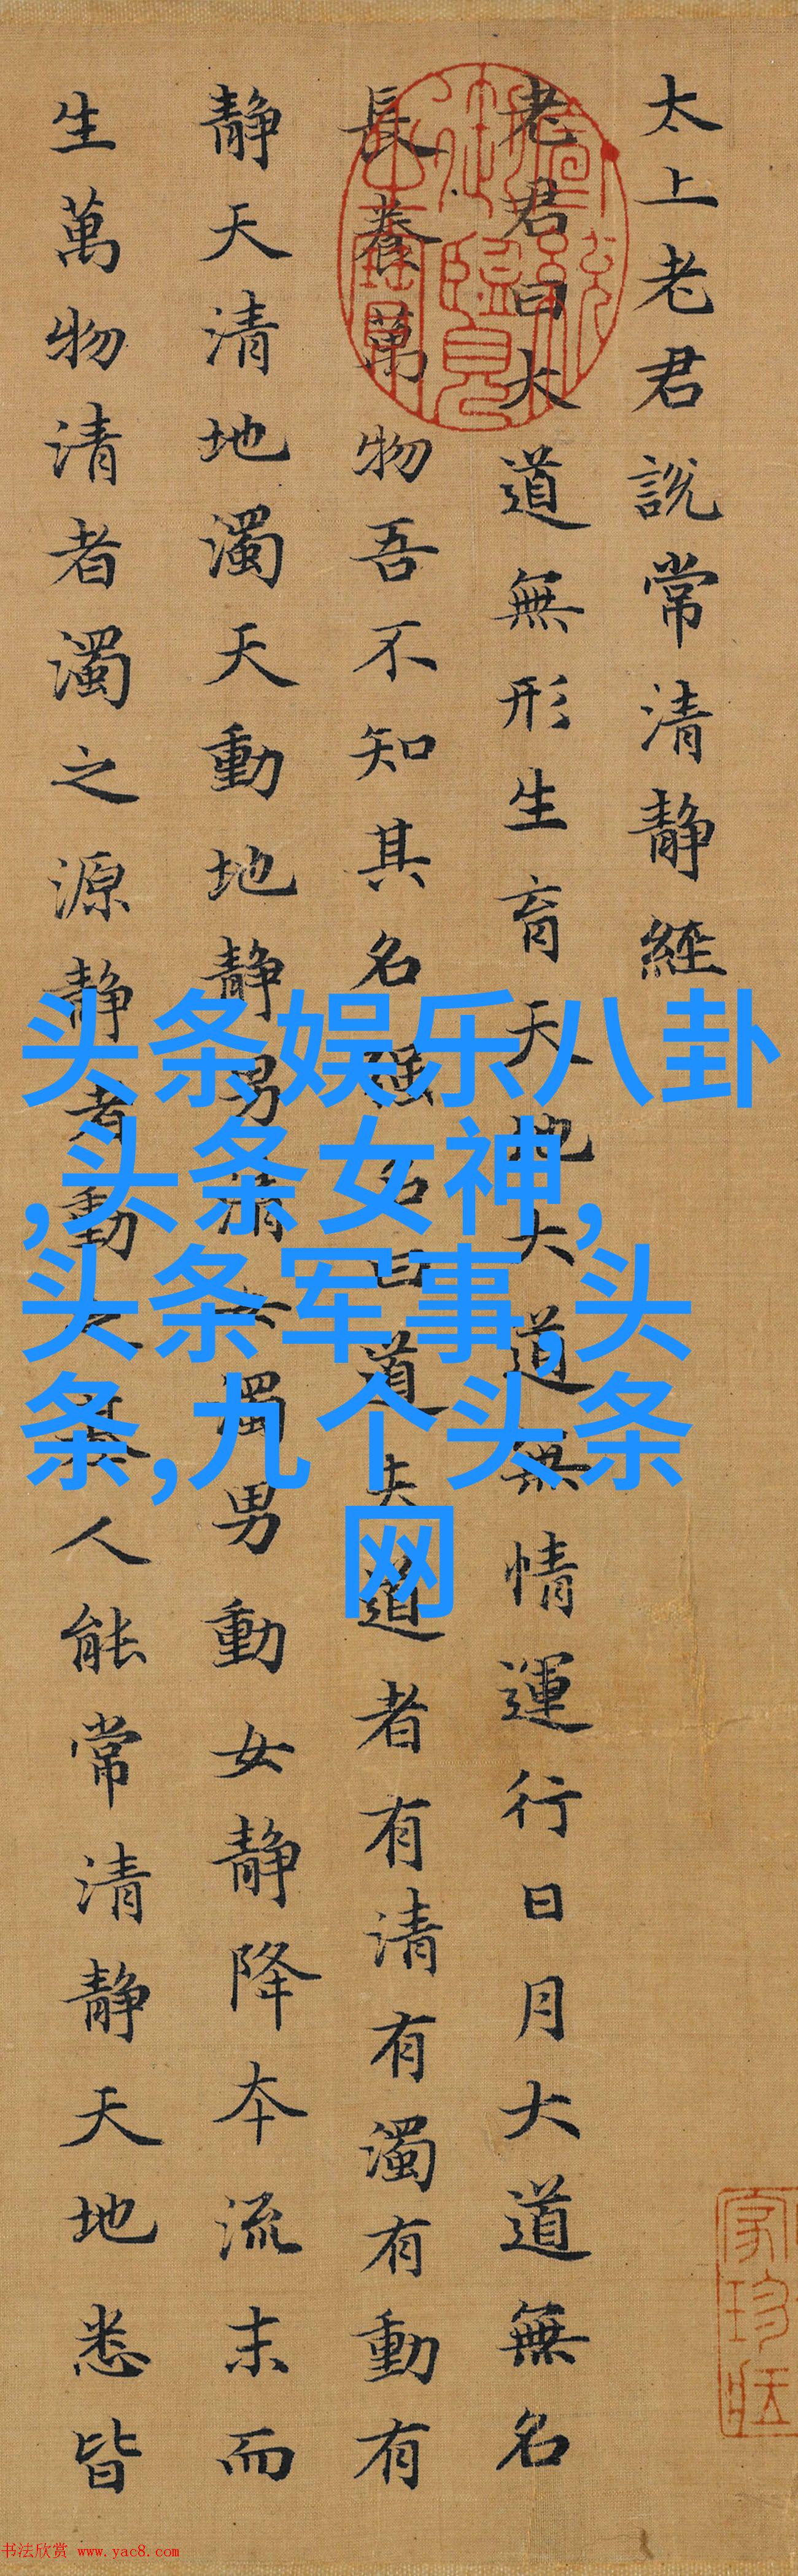 太上老君說常清靜經
老君曰大道無形生育天地大道無情運行日月大道無名
長養萬物吾不知其名強名曰道夫道者有清有濁有動有
靜天清地濁天動地靜男清女濁男動女靜降本流末而
生萬物清者濁之源靜者動之基人能常清靜天地悉皆
头条娱乐八卦
,头条女神,
头条军事,头
条,九个头条
网
书法欣赏 www.yac8.com